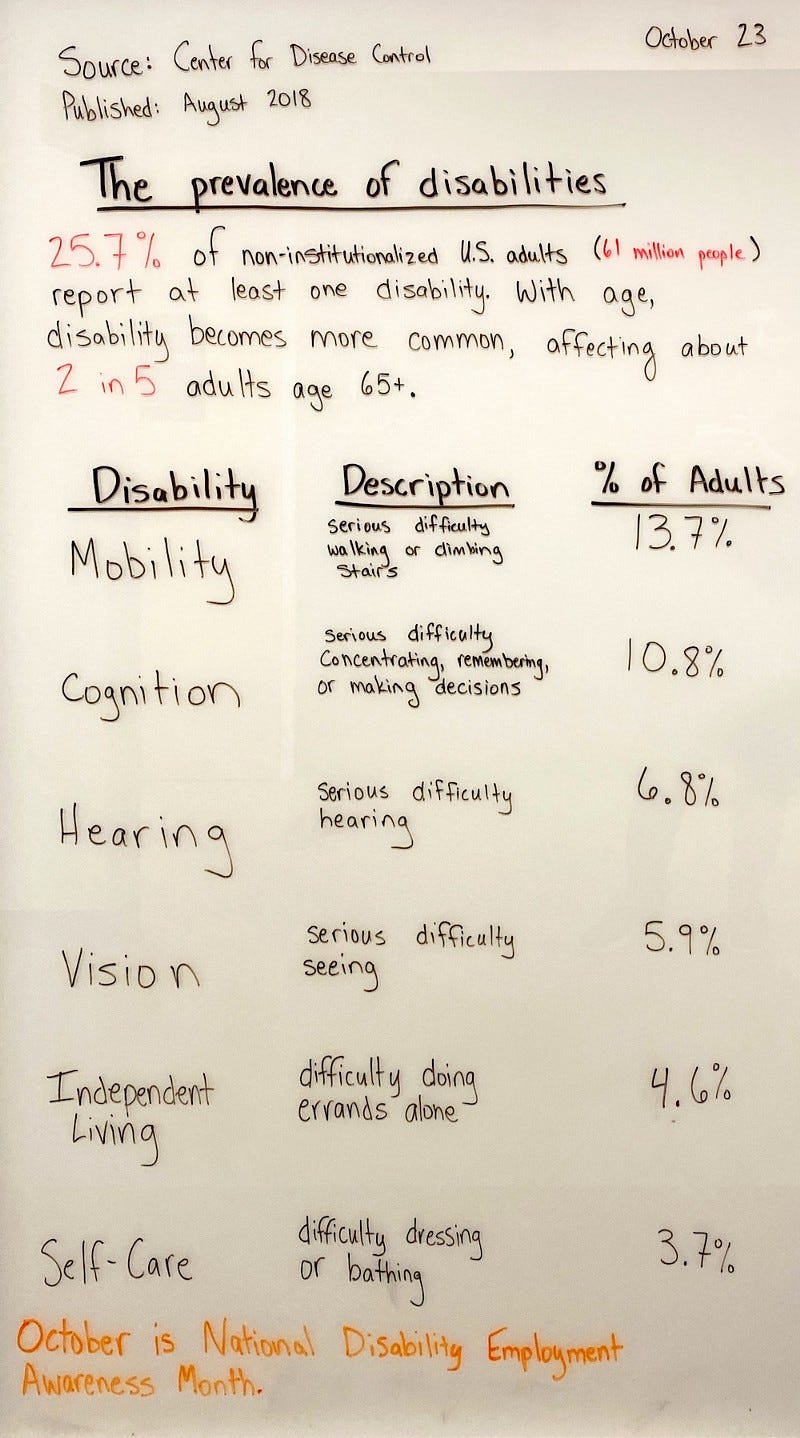 October 23
Source: Center for Disease Control
Published: August 2018
The prevalence of disabilities
25.7% of non-institutionalized U.S. adults (61 million people)
report at least one disability. With age,
disability becomes more common, affecting about
2 in 5 adults age 65+.
Disability Description % of Adults
Mobility
serious difficulty
walking or climbing
stairs
13.7%
Cognition
serious difficulty
concentrating, remembering,
or making decisions
10.8%
Hearing
serious difficulty
hearing
6.8%
Vision
serious difficulty
seeing
5.9%
Independent
Living
difficulty doing
errands alone
4.6%
Self-Care
difficulty dressing
or bathing
3.7%
October is National Disability Employment
Awareness Month.